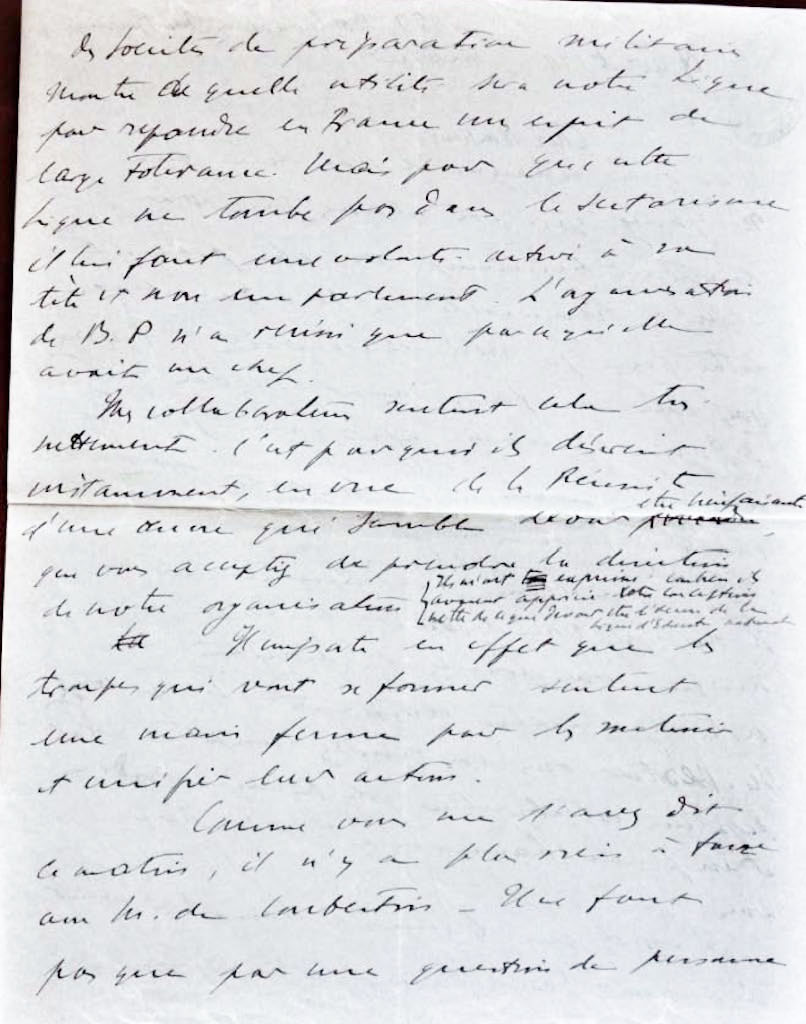 des sociétés de préparation militaire
montre de quelle utilité sera notre Ligue
pour répandre en France un esprit de
large tolérance. Mais pour que cette
Ligue ne tombe pas dans le sectarisme
il lui faut une volonté à sa
tête et non un parlement. L'organisation
de B. P n'a réussi que parce qu'elle
avait un chef.
Mes collaborateurs sentent cela très
nettement. C'est pourquoi ils désirent
instamment, en vue de la Réussite
d'une œuvre qui semble devoir être bienfaisante,
que vous acceptiez de prendre la direction
de notre organisation
Ils m'ont exprimé combien ils
avaient apprécié votre conception
nette de ce que devait être l'œuvre de la
Ligue d'Education nationale
Il importe en effet que les
troupes qui vont se former sentent
une main ferme pour les maintenir
et unifier leur action.
Comme vous me l'avez dit
ce matin, il n'y a plus rien à faire
avec M. de Coubertin – Il ne faut
pas que pour une question de personne